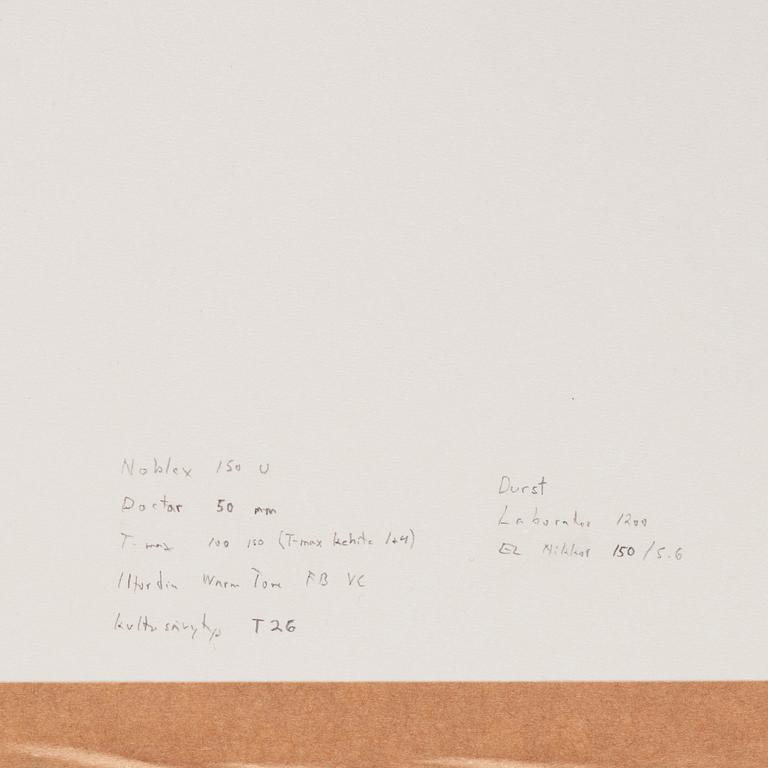 Noblex 150 U
Doctar 50 mm
T-max 100 150 (T-max kehite 1+4)
Ilfordin Warm Tone FB VC
kultasävytys T 26
Durst
Laborator 1200
EL Nikkor 150 / 5.6